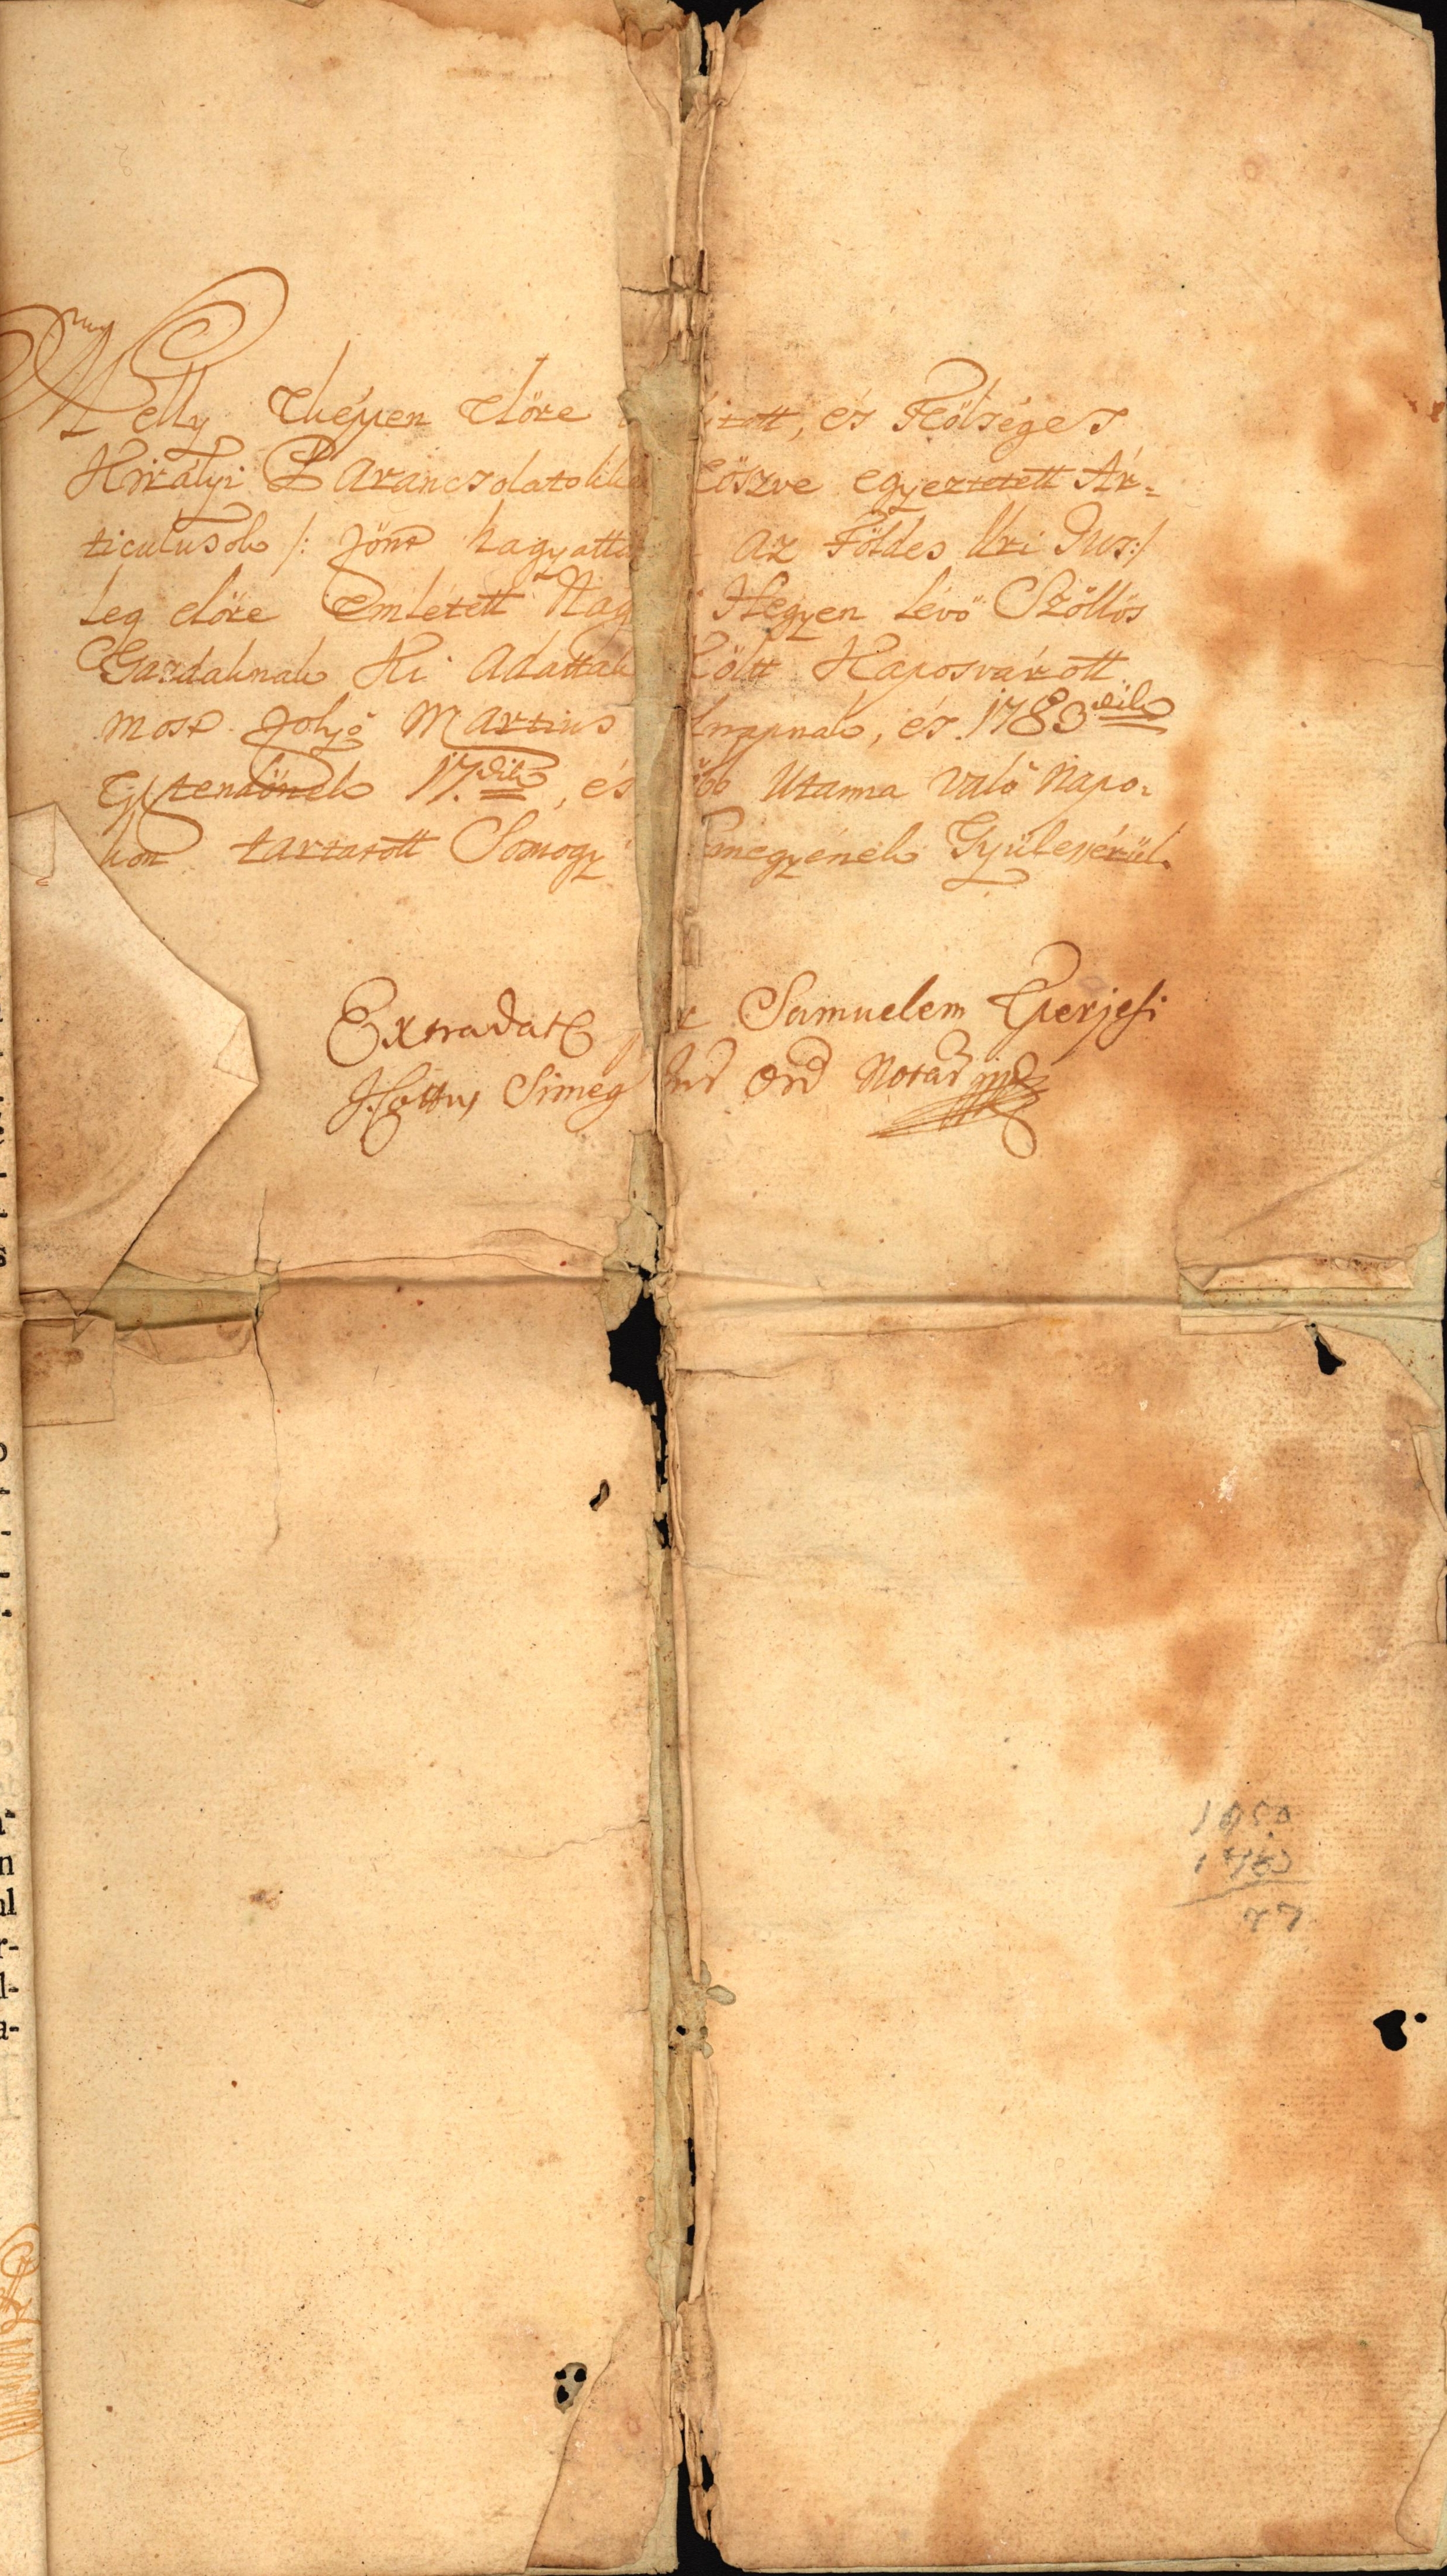 Melly kképen Előre itott, és Fölséges
Királyi Parancsolatokka Eöszve egyeztetett Ár-
ticulusok /: Fönt hagyattv az Földes Uri Jus :/
leg előre Emletett Nag Hegyen lévő Szőllős
Gazdaknak Ki Adattak Költt Kaposvárott
most folyó Martius lnapnak, és 1783dik
Esztendőnek 17.dik, és öbb Utanna való Napo-
kon tartatott Somogy megyének Gyüléssérül.
Extradat per Samuelem Eperjesi
I. Cottus Simeg Jur Ord Notar mp
1850
1783
77